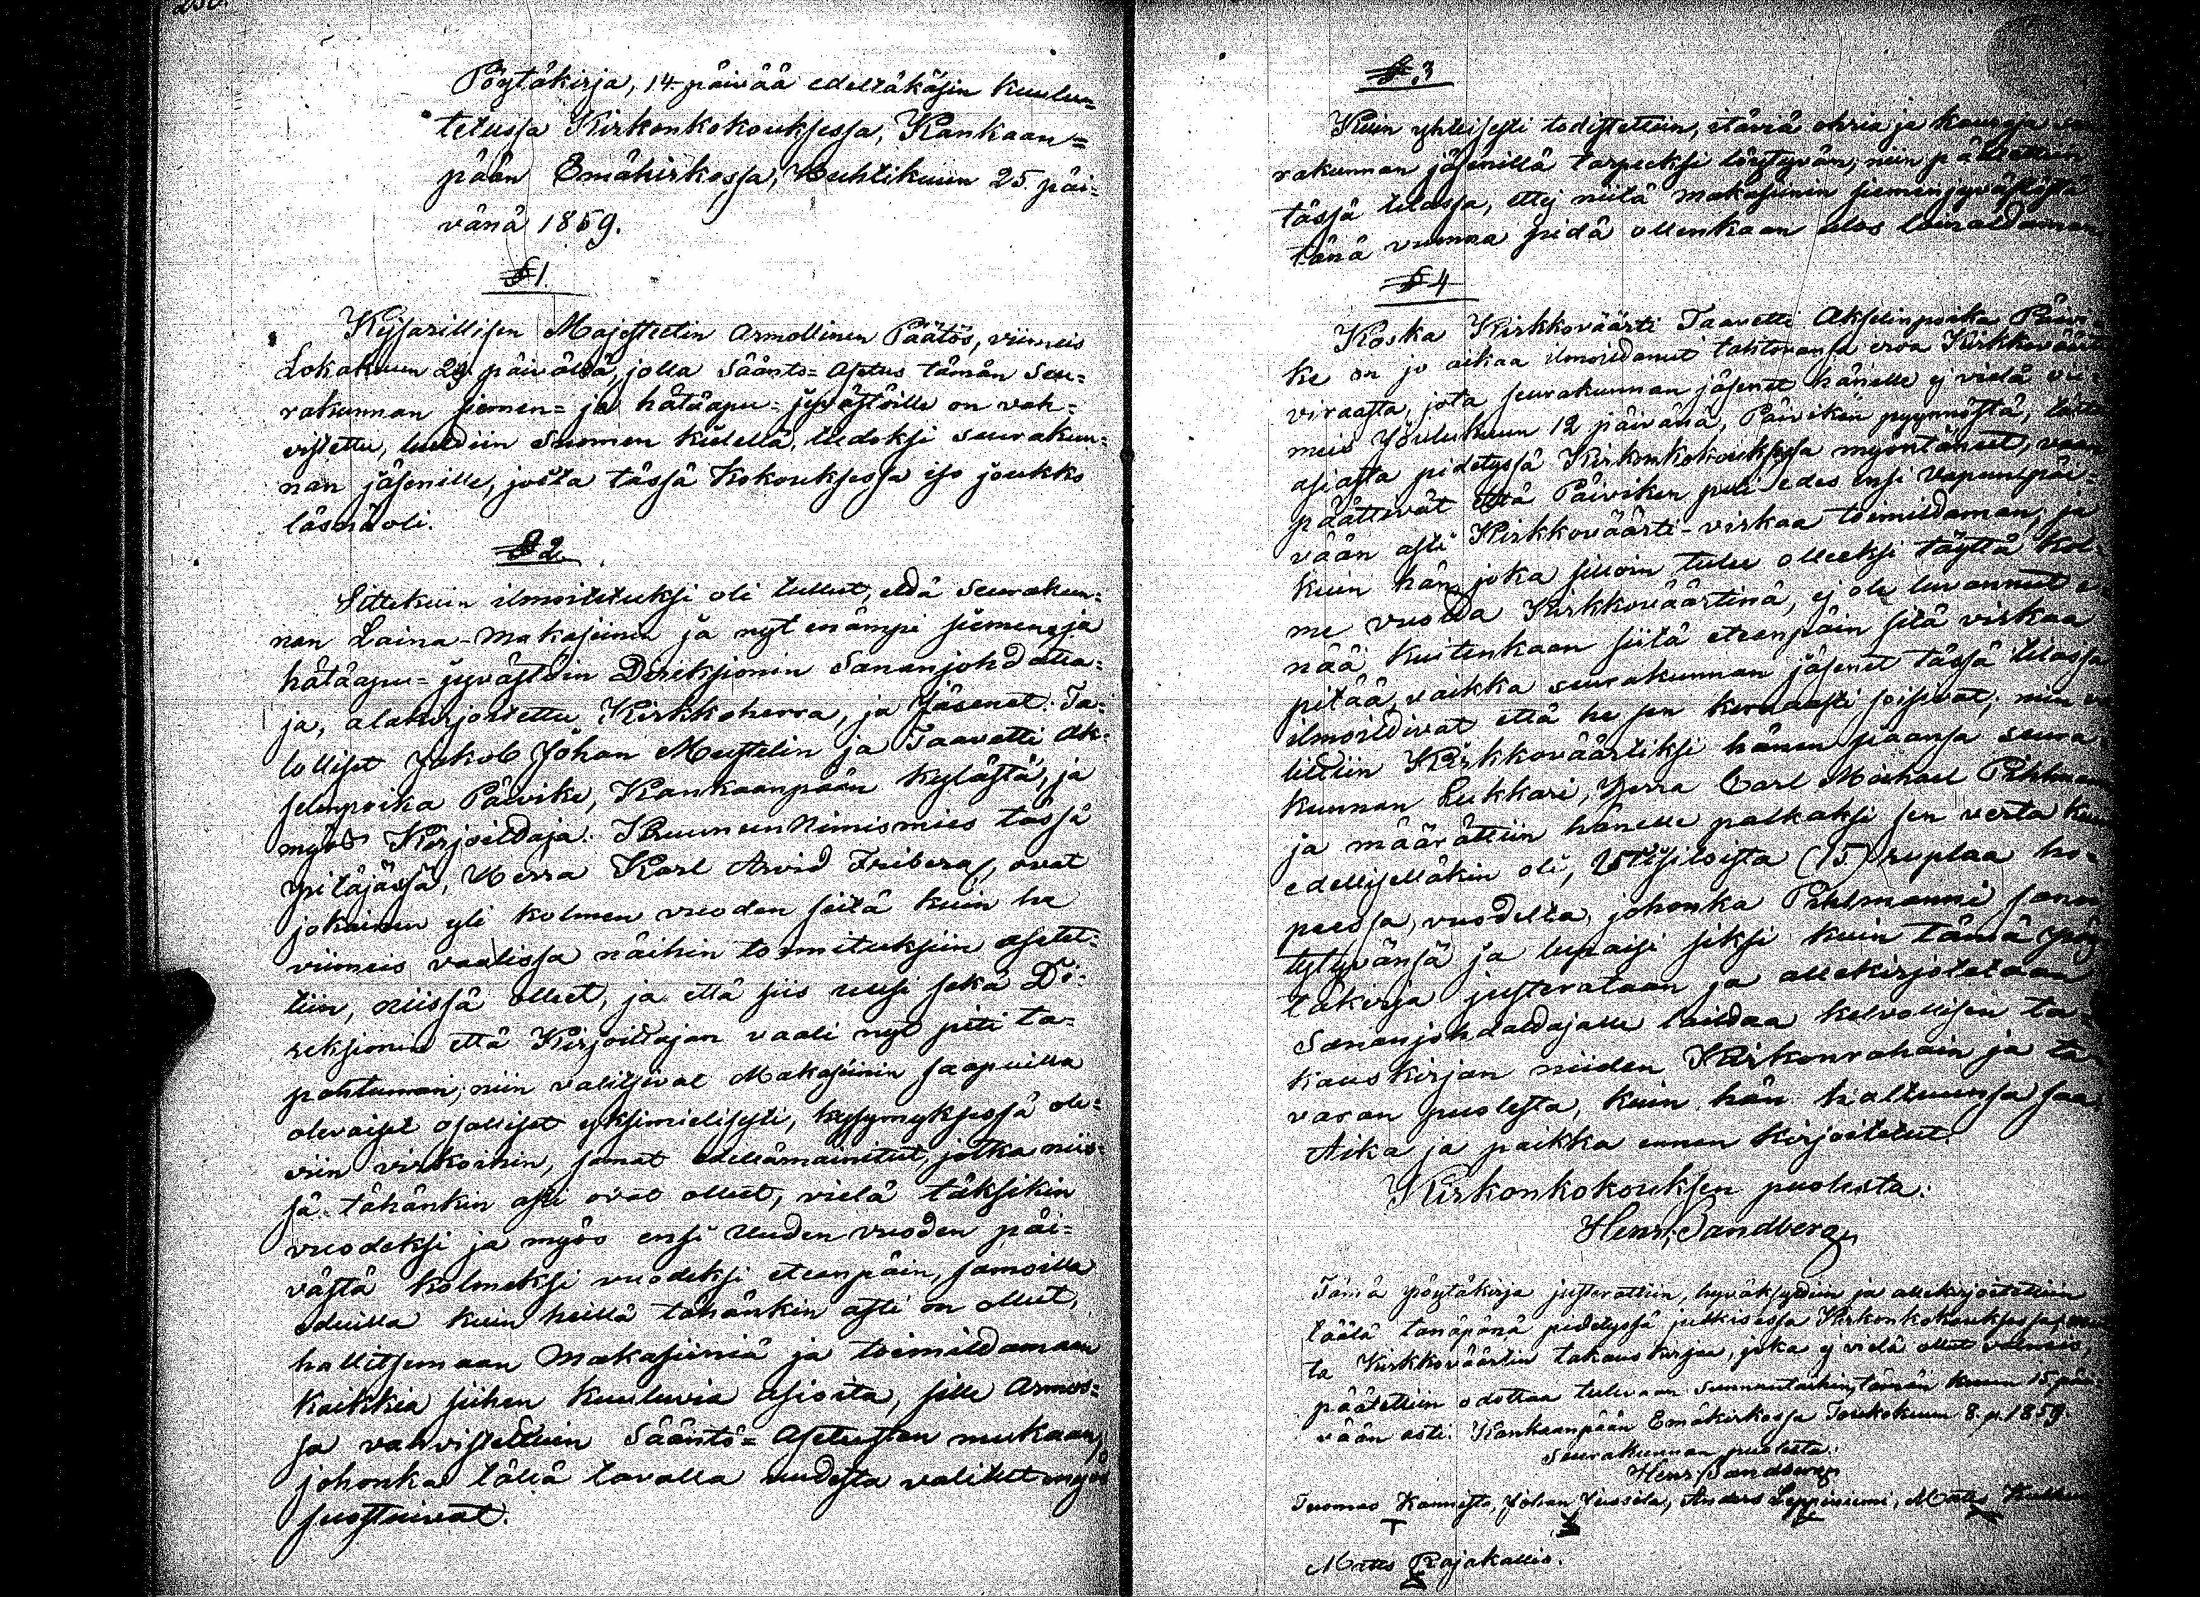 Pöytäkirja, 14 päivää edeltäkäsin kuulu=
tetussa Kirkonkokouksessa, Kankaan=
pään Emäkirkossa, Huhtikuun 25 päi=
vänä 1859.
§ 1.
Kejsarillisen Majesteetin Armollinen Päätös, viimeis
Lokakuun 29 päivältä, jolla Sääntö=Asetus tämän Seu=
rakunnan siemen= ja hätäapu=jyvästöille on vah=
vistettu, luettiin Suomen kielellä, tiedoksi seurakun=
nan jäsenille, joita tässä Kokouksessa iso joukko
läsnä oli.
§ 2.
Sittekuin ilmoitetuksi oli tullut, että Seurakun=
nan Laina-Makasiinin ja nyt enämpi siemen= ja
hätäapu=jyvästöin Direksionin Sananjohdatta=
ja, alakirjoitettu Kirkkoherra, ja Jäsenet: Ta=
lolliset Jakob Johan Mustelin ja Taavetti Ak=
selinpoika Päivike, Kankaanpään kylästä, ja
myös Kirjoittaja: Kruununnimismies tässä
pitäjässä, Herra Karl Arvid Friberg, ovat
jokainen yli kolmen vuoden siitä kuin he
viimeis vaalissa näihin toimituksiin asetet=
tiin, niissä olleet, ja että siis uusi sekä Di=
reksionin että Kirjoittajan vaali nyt piti ta=
pahtuman; niin valitsivat Makasiinin saapuilla
olevaiset osalliset yksimielisesti, kysymyksessä ole=
viin virkoihin, samat edellämainitut, jotka niis=
sä tähänkin asti ovat olleet, vielä täksikin
vuodeksi ja myös ensi uuden vuoden päi=
västä kolmeksi vuodeksi eteenpäin, samoilla
eduilla kuin heillä tähänkin asti on ollut,
hallitsemaan Makasiinia ja toimittamaan
kaikkia siihen kuuluvia asioita, sille Armos=
sa vahvistettuin Sääntö=Asetusten mukaan,
johonka tällä tavalla uudesta valitut myös
suostuivat.
§ 3
Kuin yhteisesti todistettiin, itäviä ohria ja kauroja
rakunnan jäsenillä tarpeeksi löytyvän, niin päätettiin
tässä tilassa, ettej niitä makasiinin siemenjyvästöstä
tänä vuonna pidä ollenkaan ulos lainattaman
§ 4
Koska Kirkkoväärti Taavetti Akselinpoika Päivi
ke on jo aikaa ilmoittanut tahtovansa erota Kirkkoväärti
viraasta, jota seurakunnan jäsenet hänelle ej vielä vii=
meis Joulukuun 12 päivänä, Päiviken pyynnöstä, tästä
asiasta pidetyssä Kirkonkokouksessa myöntäneet, vaan
päättivät että Päiviken piti edes ensi Vapunpäi=
vään asti Kirkkoväärti-virkaa toimittaman; ja
kuin hän, joka silloin tulee olleeksi täyttä kol=
me vuotta Kirkkoväärtinä, ej ole luvannut e=
nää kuitenkaan siitä eteenpäin sitä virkaa
pitää, vaikka seurakunnan jäsenet tässä tilassa
ilmoittivat että he sen kernaasti soisivat; niin va
littiin Kirkkoväärtiksi hänen siaansa seura
kunnan Lukkari, Herra Carl Michael Pihlman
ja määrättiin hänelle palkaksi sen verta kuin
edelliselläkin oli, Viisitoista (15) ruplaa ho=
peessa, vuodelta, johonka Pihlmanni sanoi
tytyvänsä ja lupaisi siksi kuin tämä pöy
täkirja justerataan ja allekirjoitetaan
Sananjohdattajalle laittaa kelvollisen ta=
kauskirjan niiden Kirkonrahain ja ta
varan puolesta, kuin hän haltuunsa saa.
Aika ja paikka ennen kirjoitetut.
Kirkonkokouksen puolesta:
Henr. Sandberg
Tämä pöytäkirja justerattiin, hyväksyttiin ja allekirjoitettiin
täälä tänäpänä pidetyssä julkisessa Kirkonkokouksessa,
ta Kirkkoväärtin takauskirjaa, joka ej vielä ollut valmis,
päätettiin odottaa tulevaan sunnuntaihin, tämän kuun 15 päi=
vään asti. Kankaanpään Emäkirkossa Toukokuun 8. p. 1859.
Seurakunnan puolesta:
Henr. Sandberg
Tuomas Kannisto, Johan Jussila, Anders Leppiniemi, Matts
Matts Rajakallio.